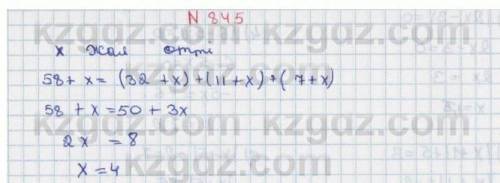 N 845
х жал өтті
58+ x = (32 +x) +(11+x) +( 7+x)
58 + x =50 + 3x
2x = 8
X = 4
kzgdz.com kzgdz.com
kzgdz.com kzgdz.com